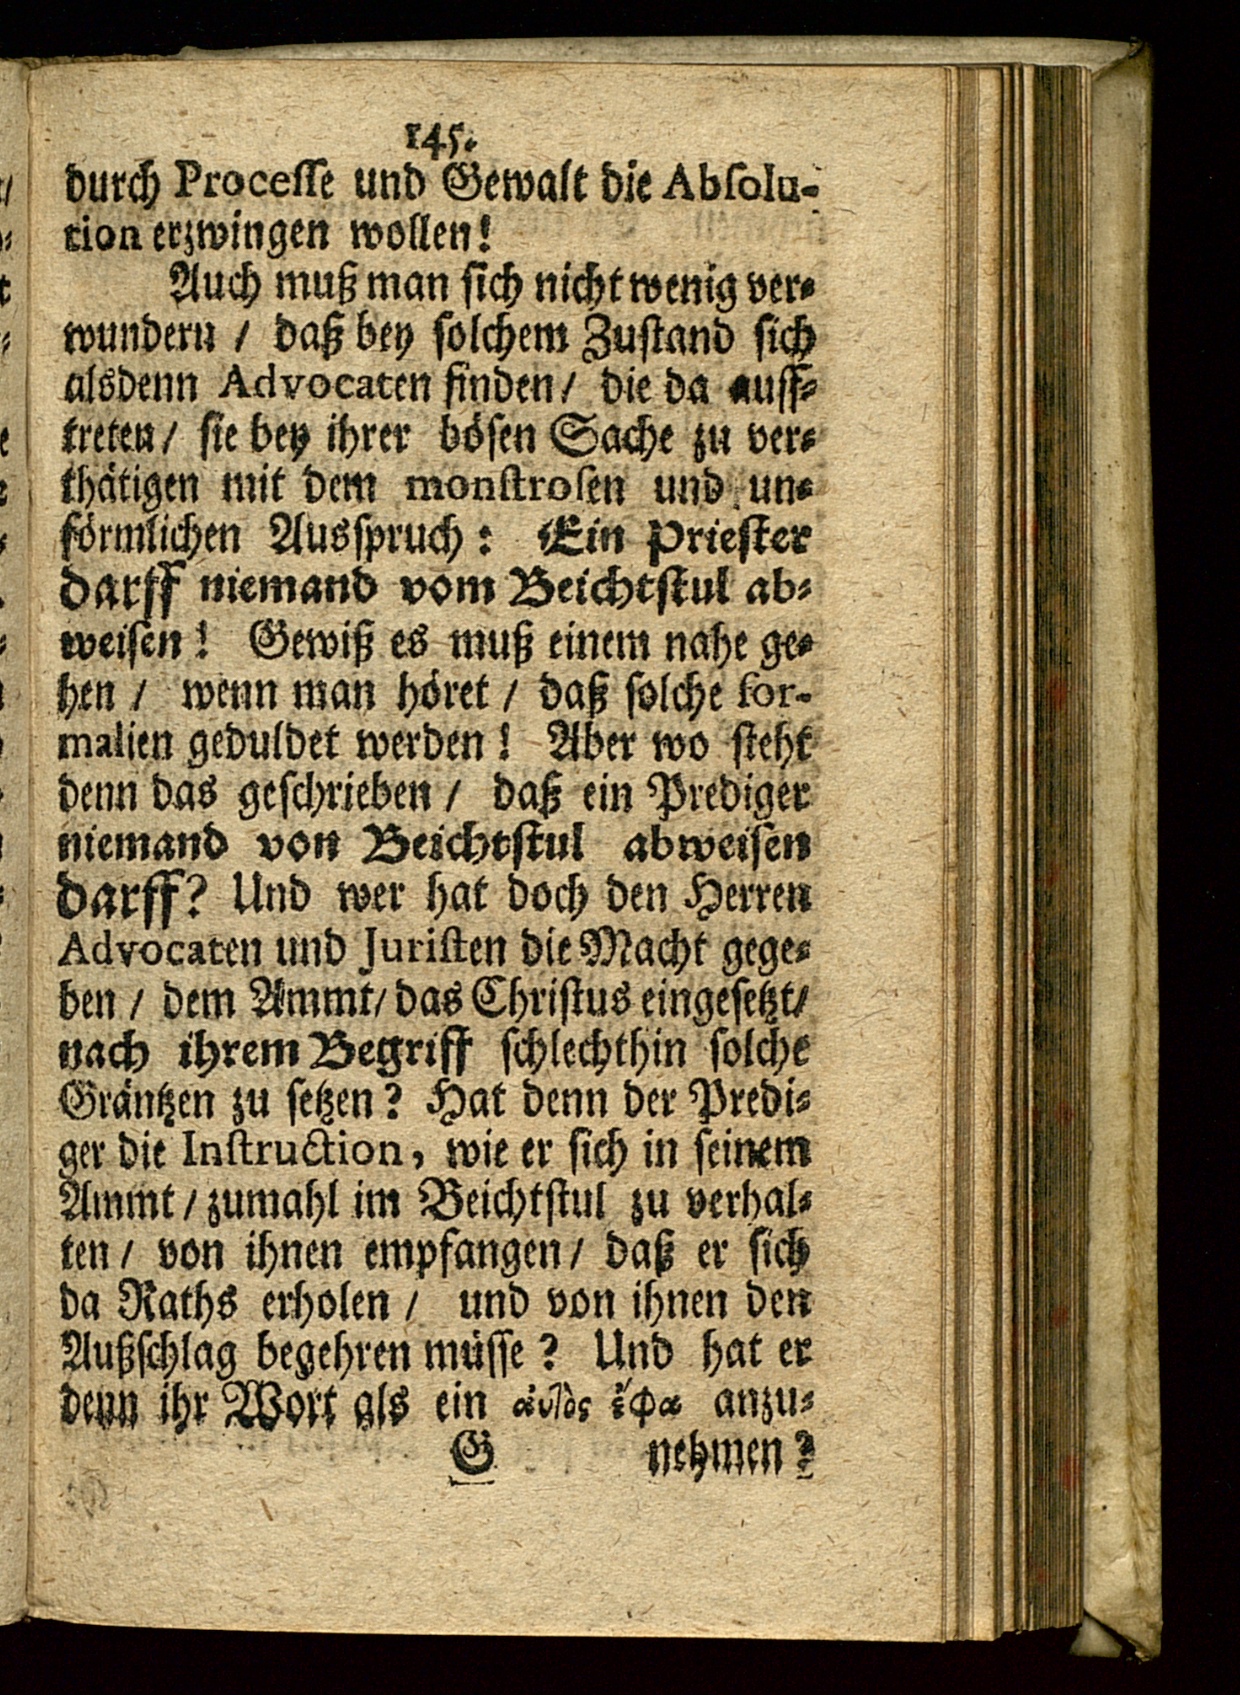 145.
durch Processe und Gewalt die Absolu-
tion erzwingen wollen!
Auch muß man sich nicht wenig ver-
wundern / daß bey solchem Zustand sich
alsdenn Advocaten finden / die da auff-
treten / sie bey ihrer bösen Sache zu ver-
thätigen mit dem monstrosen und un-
förmlichen Ausspruch: Ein Priester
darff niemand vom Beichtstul ab-
weisen! Gewiß es muß einem nahe ge-
hen / wenn man höret / daß solche for-
malien geduldet werden! Aber wo steht
denn das geschrieben / daß ein Prediger
niemand von Beichtstul abweisen
darff? Und wer hat doch den Herren
Advocaten und Juristen die Macht gege-
ben / dem Ammt / das Christus eingesetzt /
nach ihrem Begriff schlechthin solche
Gräntzen zu setzen? Hat denn der Predi-
ger die Instruction, wie er sich in seinem
Ammt / zumahl im Beichtstul zu verhal-
ten / von ihnen empfangen / daß er sich
da Raths erholen / und von ihnen den
Außschlag begehren müsse? Und hat er
denn ihr Wort als ein ἀυτὸς ἔφα anzu-
G nehmen?